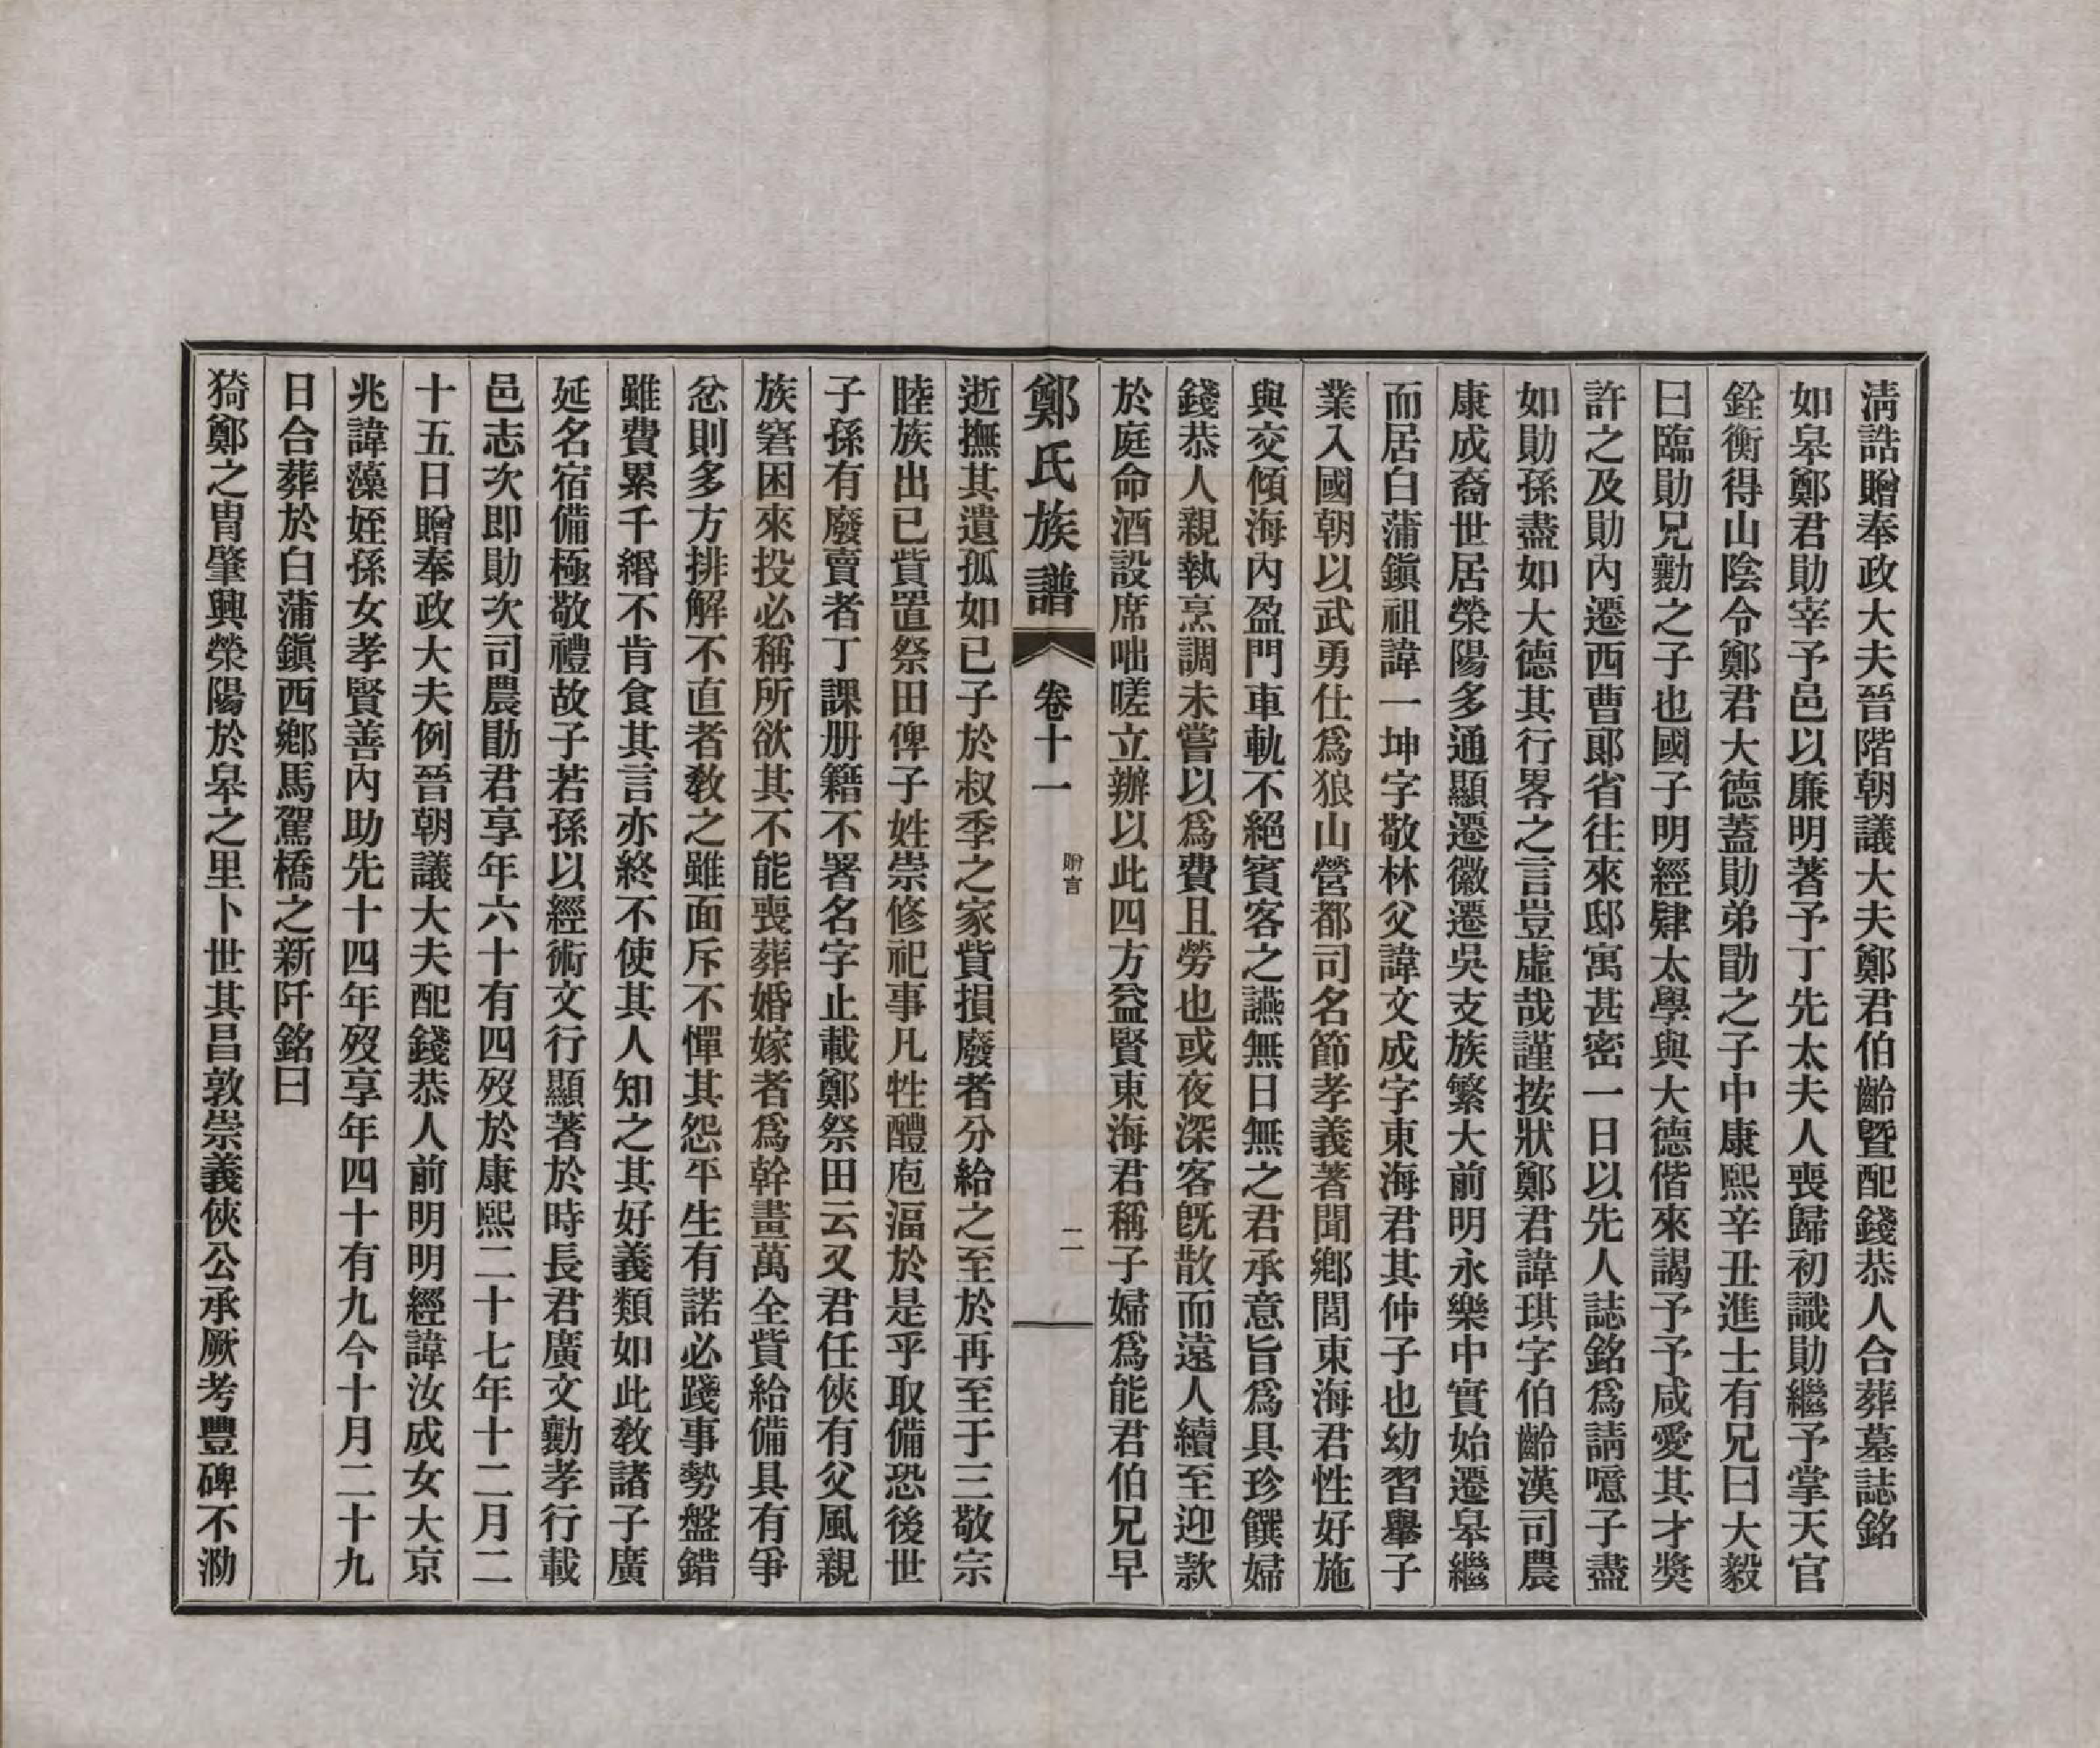 淸誥贈奉政大夫晉階朝議大夫鄭君伯齡曁配錢恭人合葬墓誌銘
如皋鄭君勛宰予邑以廉明著予丁先太夫人喪歸初識勛繼予掌天官
銓衡得山陰令鄭君大德蓋勛弟勖之子中康熙辛丑進士有兄曰大毅
曰臨勛兄勷之子也國子明經肄太學與大德偕來謁予予咸愛其才獎
許之及勛內遷西曹郞省往來邸寓甚密一日以先人誌銘爲請噫子盡
如勛孫盡如大德其行畧之言豈虛哉謹按狀鄭君諱琪字伯齡漢司農
康成裔世居滎陽多通顯遷徽遷吳支族繁大前明永樂中實始遷皋繼
而居白蒲鎭祖諱一坤字敬林父諱文成字東海君其仲子也幼習舉子
業入國朝以武勇仕爲狼山營都司名節孝義著聞鄕閭東海君性好施
與交傾海內盈門車軌不絕賓客之讌無日無之君承意旨爲具珍饌婦
錢恭人親執烹調未嘗以爲費且勞也或夜深客旣散而遠人續至迎款
於庭命酒設席咄嗟立辦以此四方益賢東海君稱子婦爲能君伯兄早
鄭氏族譜
卷十一
贈言
二
逝撫其遺孤如已子於叔季之家貲損廢者分給之至於再至于三敬宗
睦族出已貲置祭田俾子姓崇修祀事凡牲醴庖湢於是乎取備恐後世
子孫有廢賣者丁課册籍不署名字止載鄭祭田云又君任俠有父風親
族窘困來投必稱所欲其不能喪葬婚嫁者爲幹畫萬全貲給備具有爭
忿則多方排解不直者敎之雖面斥不憚其怨平生有諾必踐事勢盤錯
雖費累千緡不肯食其言亦終不使其人知之其好義類如此敎諸子廣
延名宿備極敬禮故子若孫以經術文行顯著於時長君廣文勷孝行載
邑志次即勛次司農勖君享年六十有四歿於康熙二十七年十二月二
十五日贈奉政大夫例晉朝議大夫配錢恭人前明明經諱汝成女大京
兆諱藻姪孫女孝賢善內助先十四年歿享年四十有九今十月二十九
日合葬於白蒲鎭西鄕馬駕橋之新阡銘曰
猗鄭之胄肇興滎陽於皋之里卜世其昌敦崇義俠公承厥考豐碑不泐